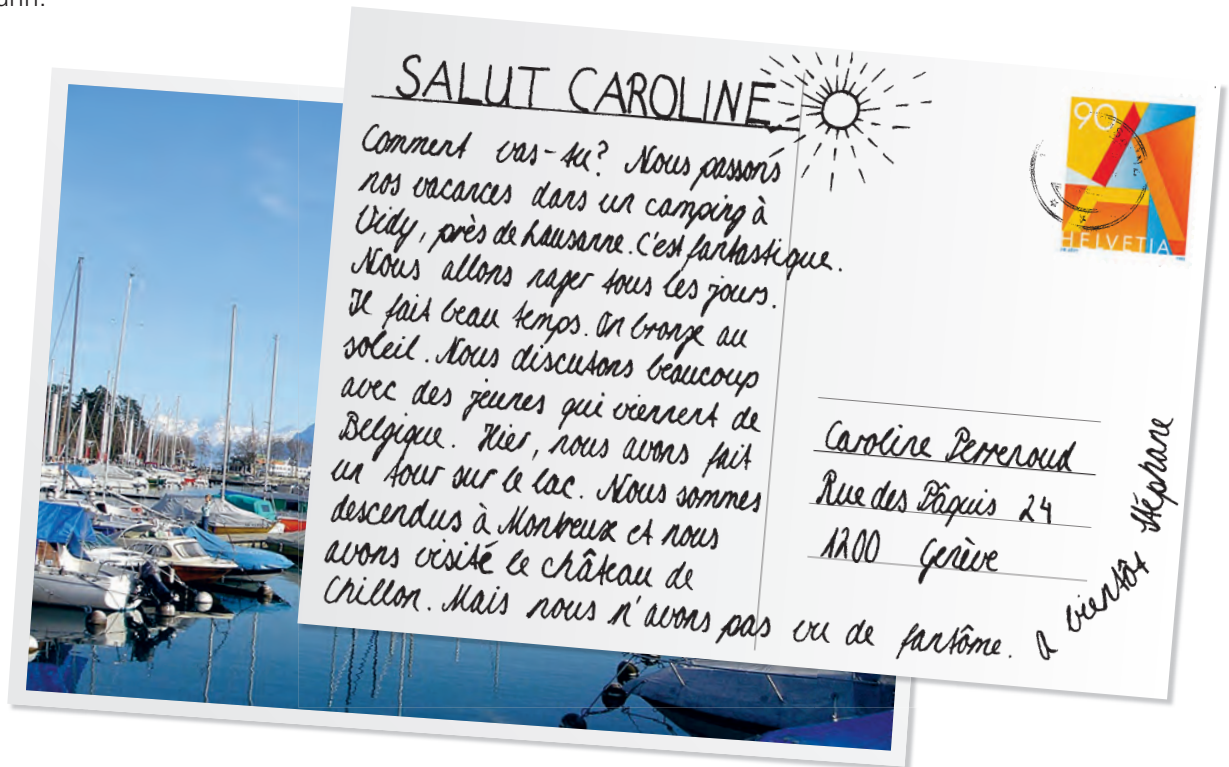 SALUT CAROLINE
Comment vas-tu? Nous passons
nos vacances dans un camping à
Vidy, près de Lausanne. C'est fantastique.
Nous allons nager tous les jours.
Il fait beau temps. On bronze au
soleil. Nous discutons beaucoup
avec des jeunes qui viennent de
Belgique. Hier, nous avons fait
un tour sur le lac. Nous sommes
descendus à Montreux et nous
avons visité le château de
Chillon. Mais nous n'avons pas vu de fantôme.
A bientôt Stéphane
90
A
HELVETIA
Caroline Perrenoud
Rue des Pâquis 24
1200 Genève